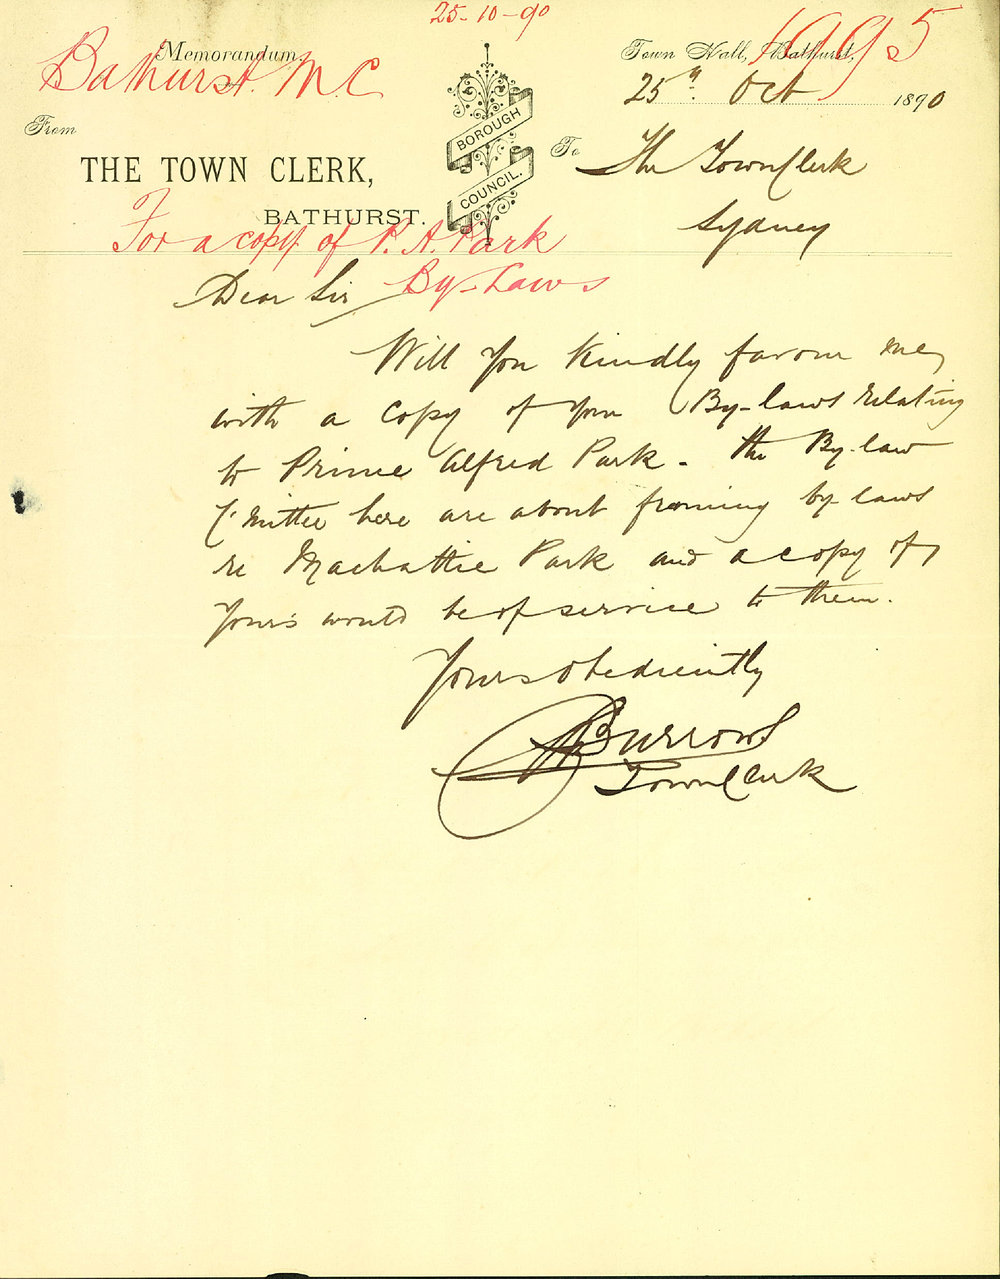 25-10-90
Memorandum.
Bathurst M.C
Town Hall, Bathurst,
1995
25th. Oct 1890
From
BOROUGH
COUNCIL.
To
The Town Clerk
THE TOWN CLERK,
BATHURST.
Sydney
For a copy of P. A. Park
By-Laws
Dear Sir
Will you kindly favour me,
with a copy of your By-laws relating
to Prince Alfred Park. the By-law
C'mittee here are about framing by-laws
re Machattie Park and a copy of
yours would be of service to them.
Yours obediently
Burrows
Town Clerk